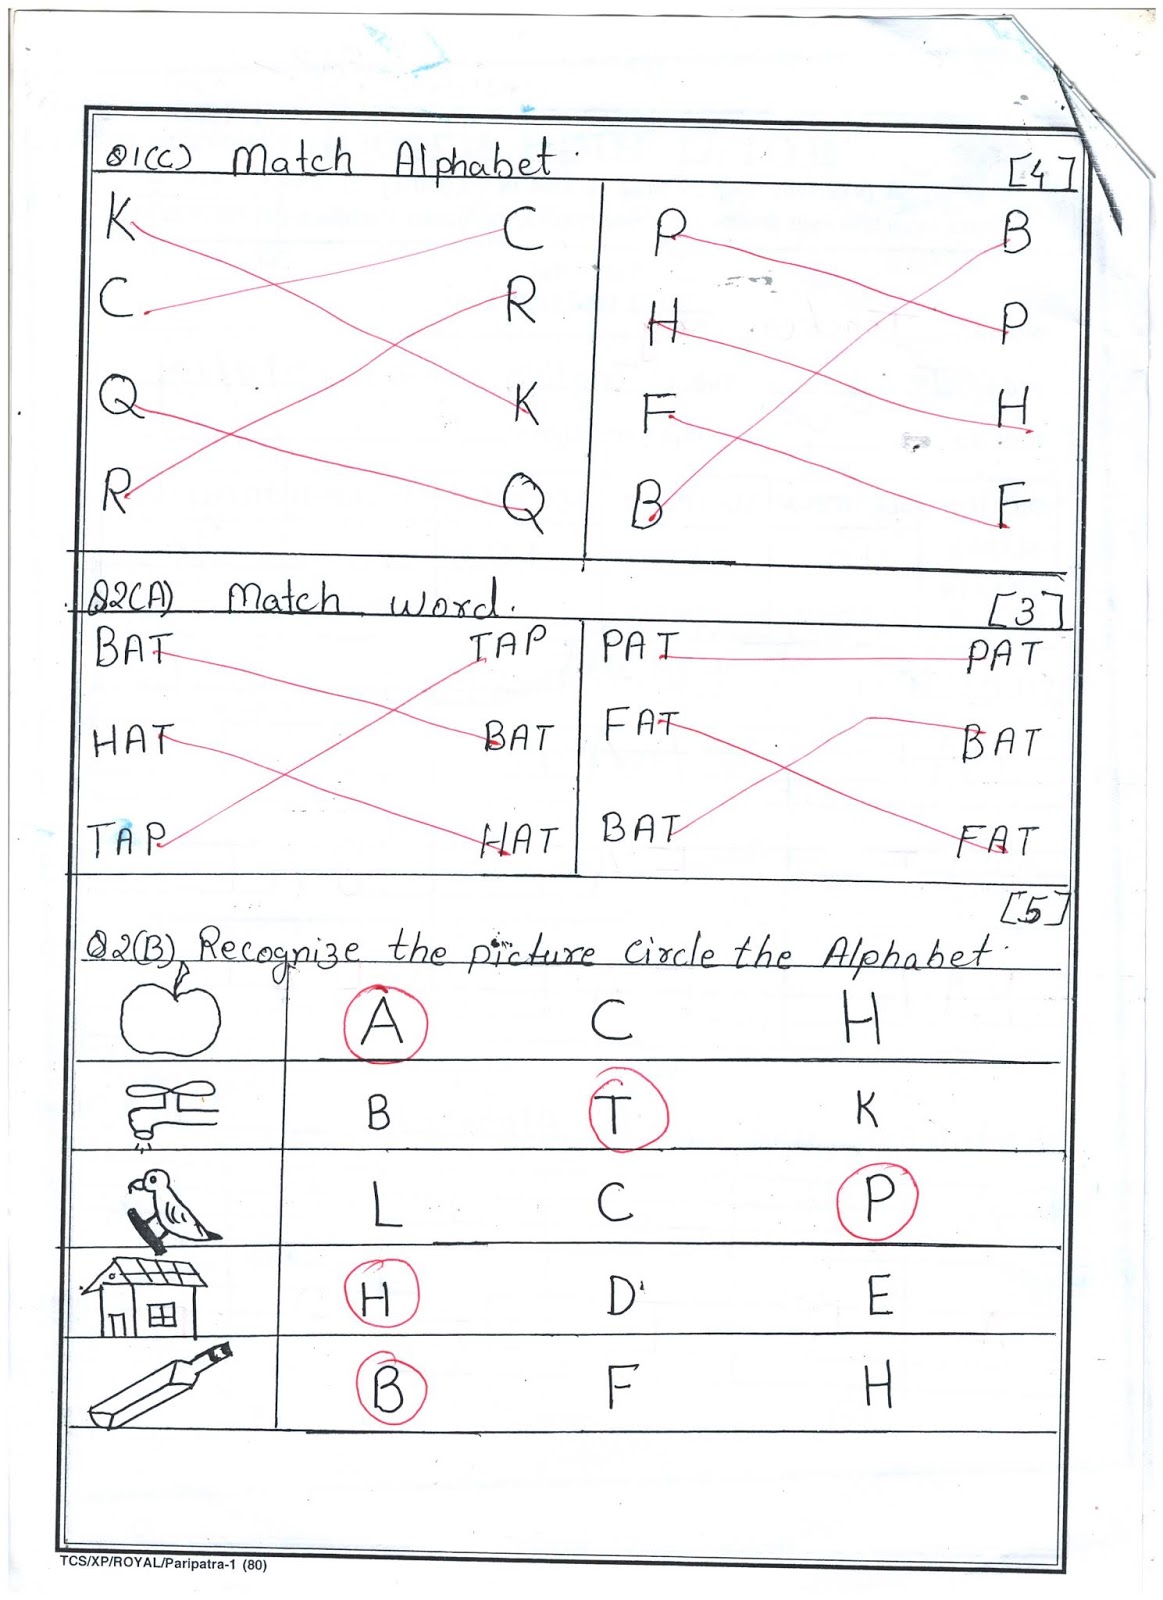 Q1(C) Match Alphabet. [4]
K C P B
C R H P
Q K F H
R Q B F
Q2(A) Match word. [3]
BAT TAP PAT PAT
HAT BAT FAT BAT
TAP HAT BAT FAT
[5]
Q2(B) Recognize the picture circle the Alphabet.
A C H
B T K
L C P
H D E
B F H
TCS/XP/ROYAL/Paripatra-1 (80)